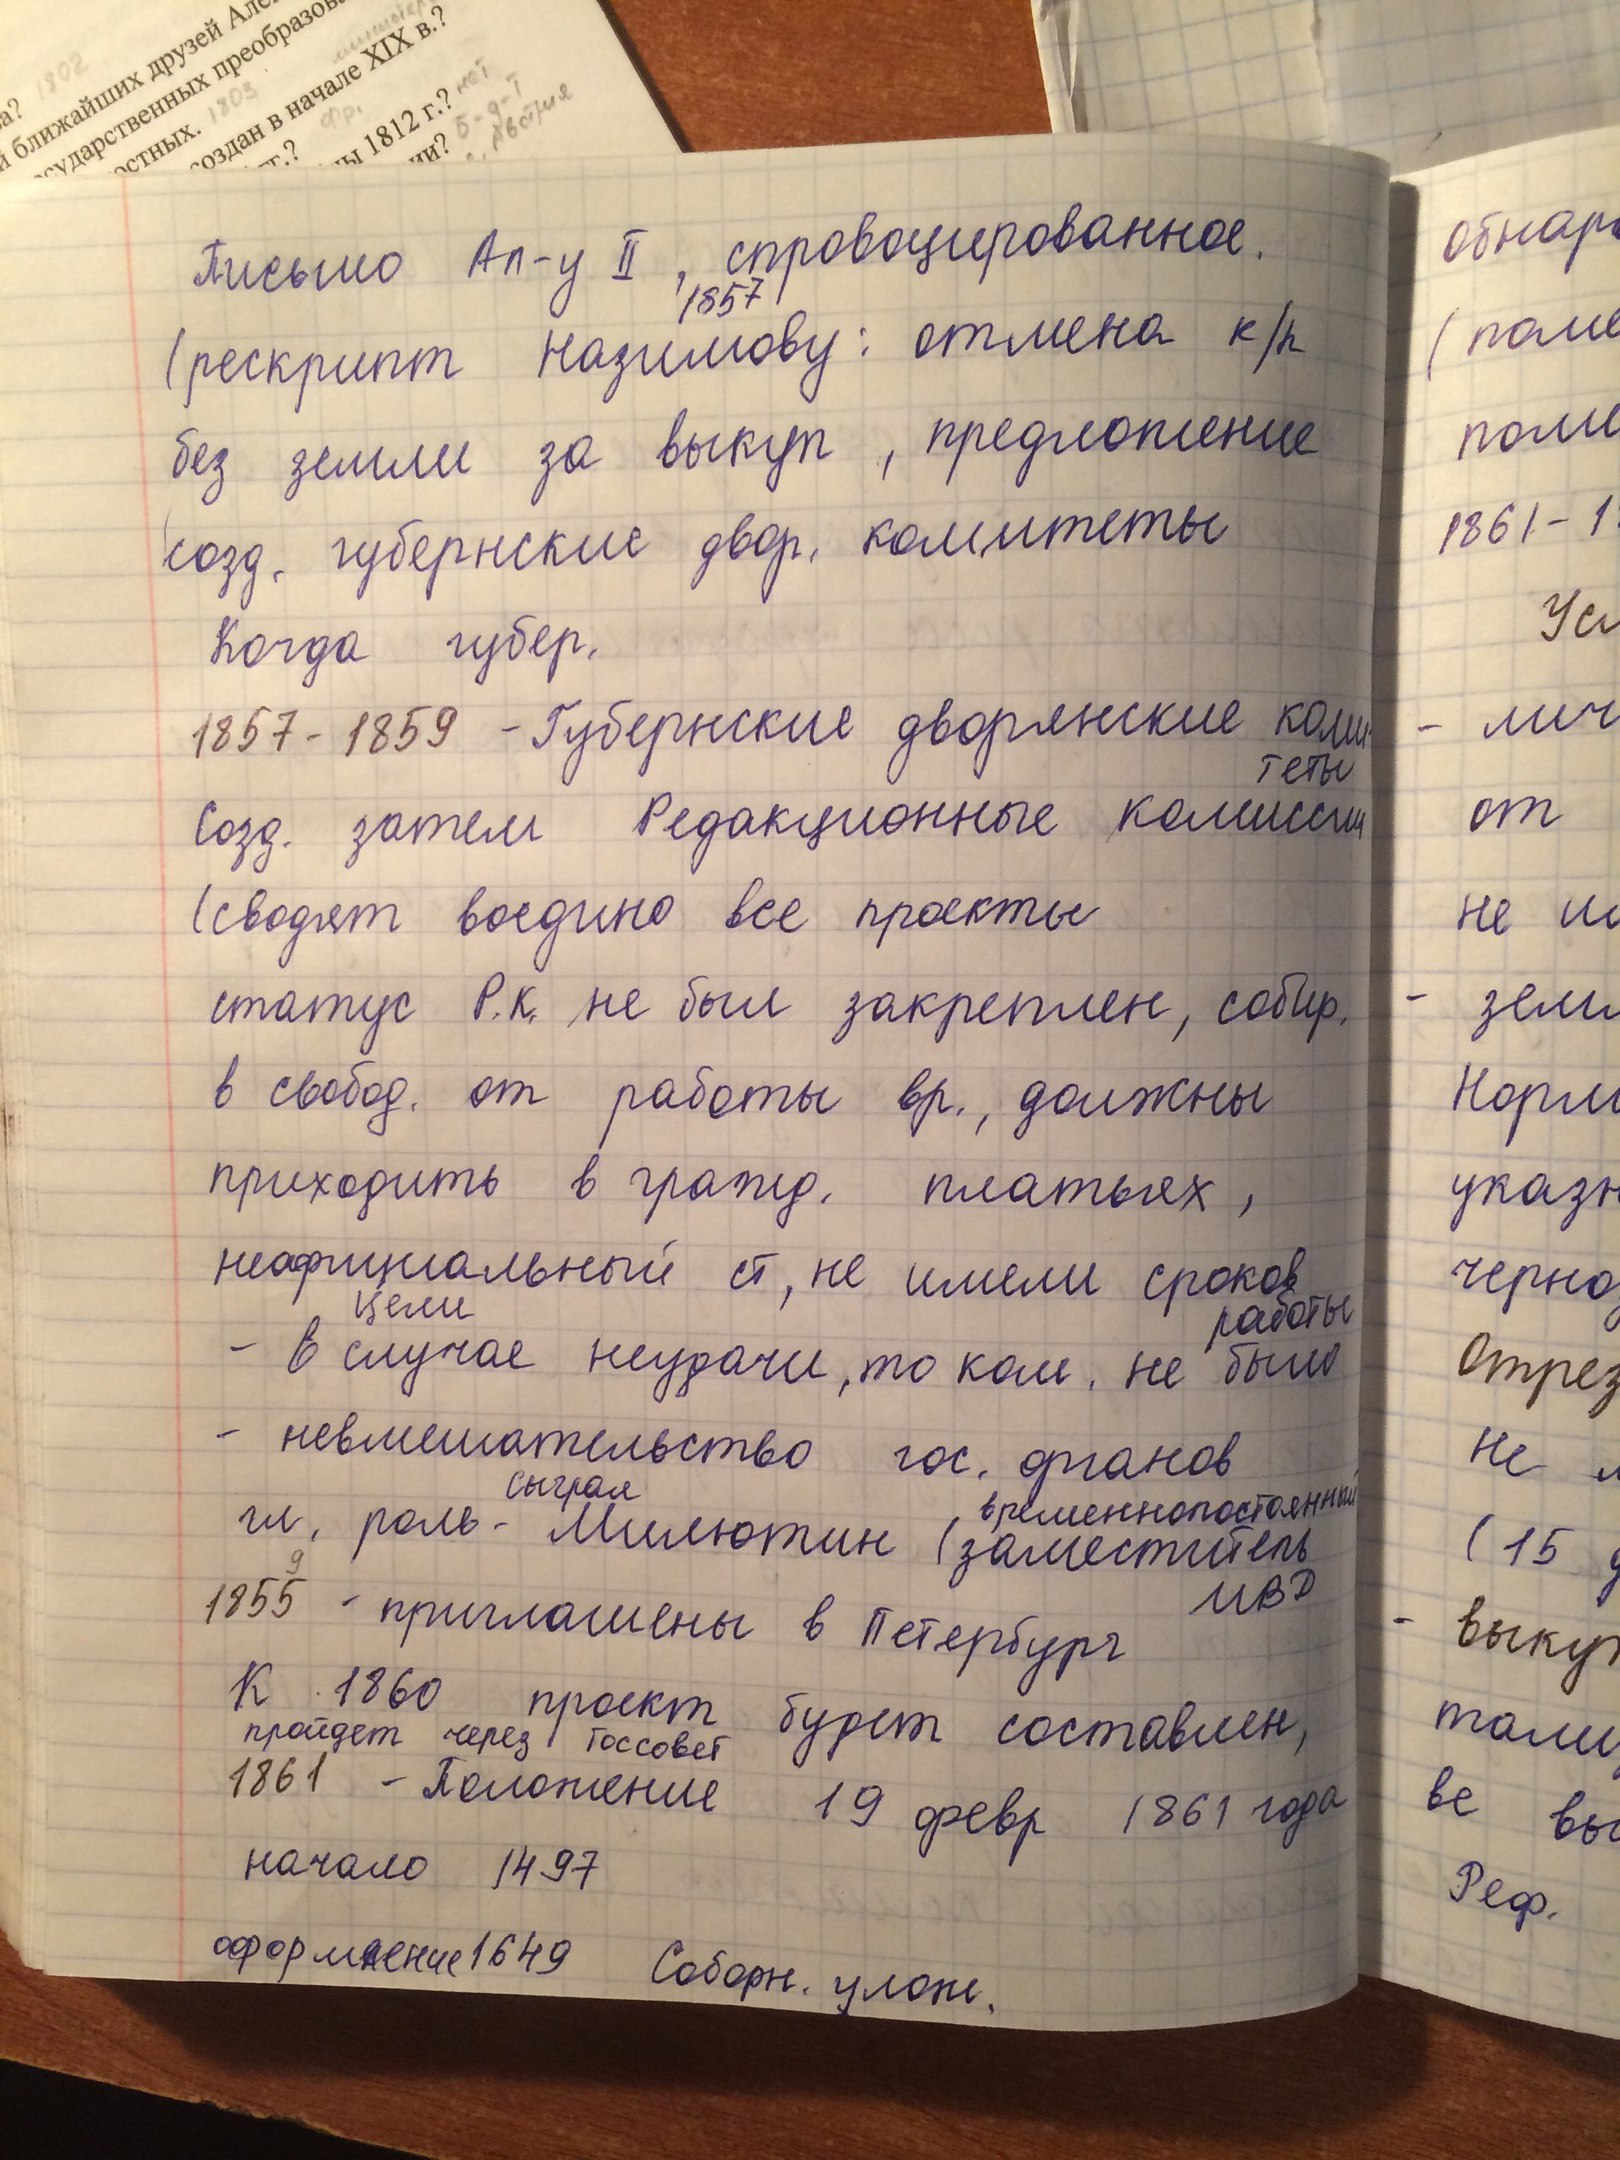 1802
ва?
й ближайших друзей Але
осударственных преобразова
остных. 1803
создан в начале XIX в.?
Фр.
гг.?
ны 1812 г.? нет
ии? Б-9-Т
Австрия
Письмо Ал-у II, спровоцированное.
1857
(рескрипт Назимову: отмена к/п
без земли за выкуп, предложение
созд. губернские двор. комитеты
Когда губер.
1857-1859 - Губернские дворянские коми-
теты
Созд. затем Редакционные комиссии
(сводят воедино все проекты
статус Р.К. не был закреплен, собир.
в свобод. от работы вр., должны
приходить в гражд. платьях,
неофициальный ст, не имели сроков
работы
Цели
- в случае неудачи, то ком. не было
- невмешательство гос. органов
сыграл
гл. роль - Милютин (временнопостоянный
заместитель
МВД
9
1855 - приглашены в Петербург
К 1860 проект будет составлен,
пройдет через Госсовет
1861 - Положение 19 февр 1861 года
начало 1497
оформление 1649 Соборн. улож.
обнаро
(поме
поме
1861-1
Усл
- лич
от
не и
- земл
Норм
указн
черно
Отрез
не
(15 д
- выкуп
ве вы
Реф.